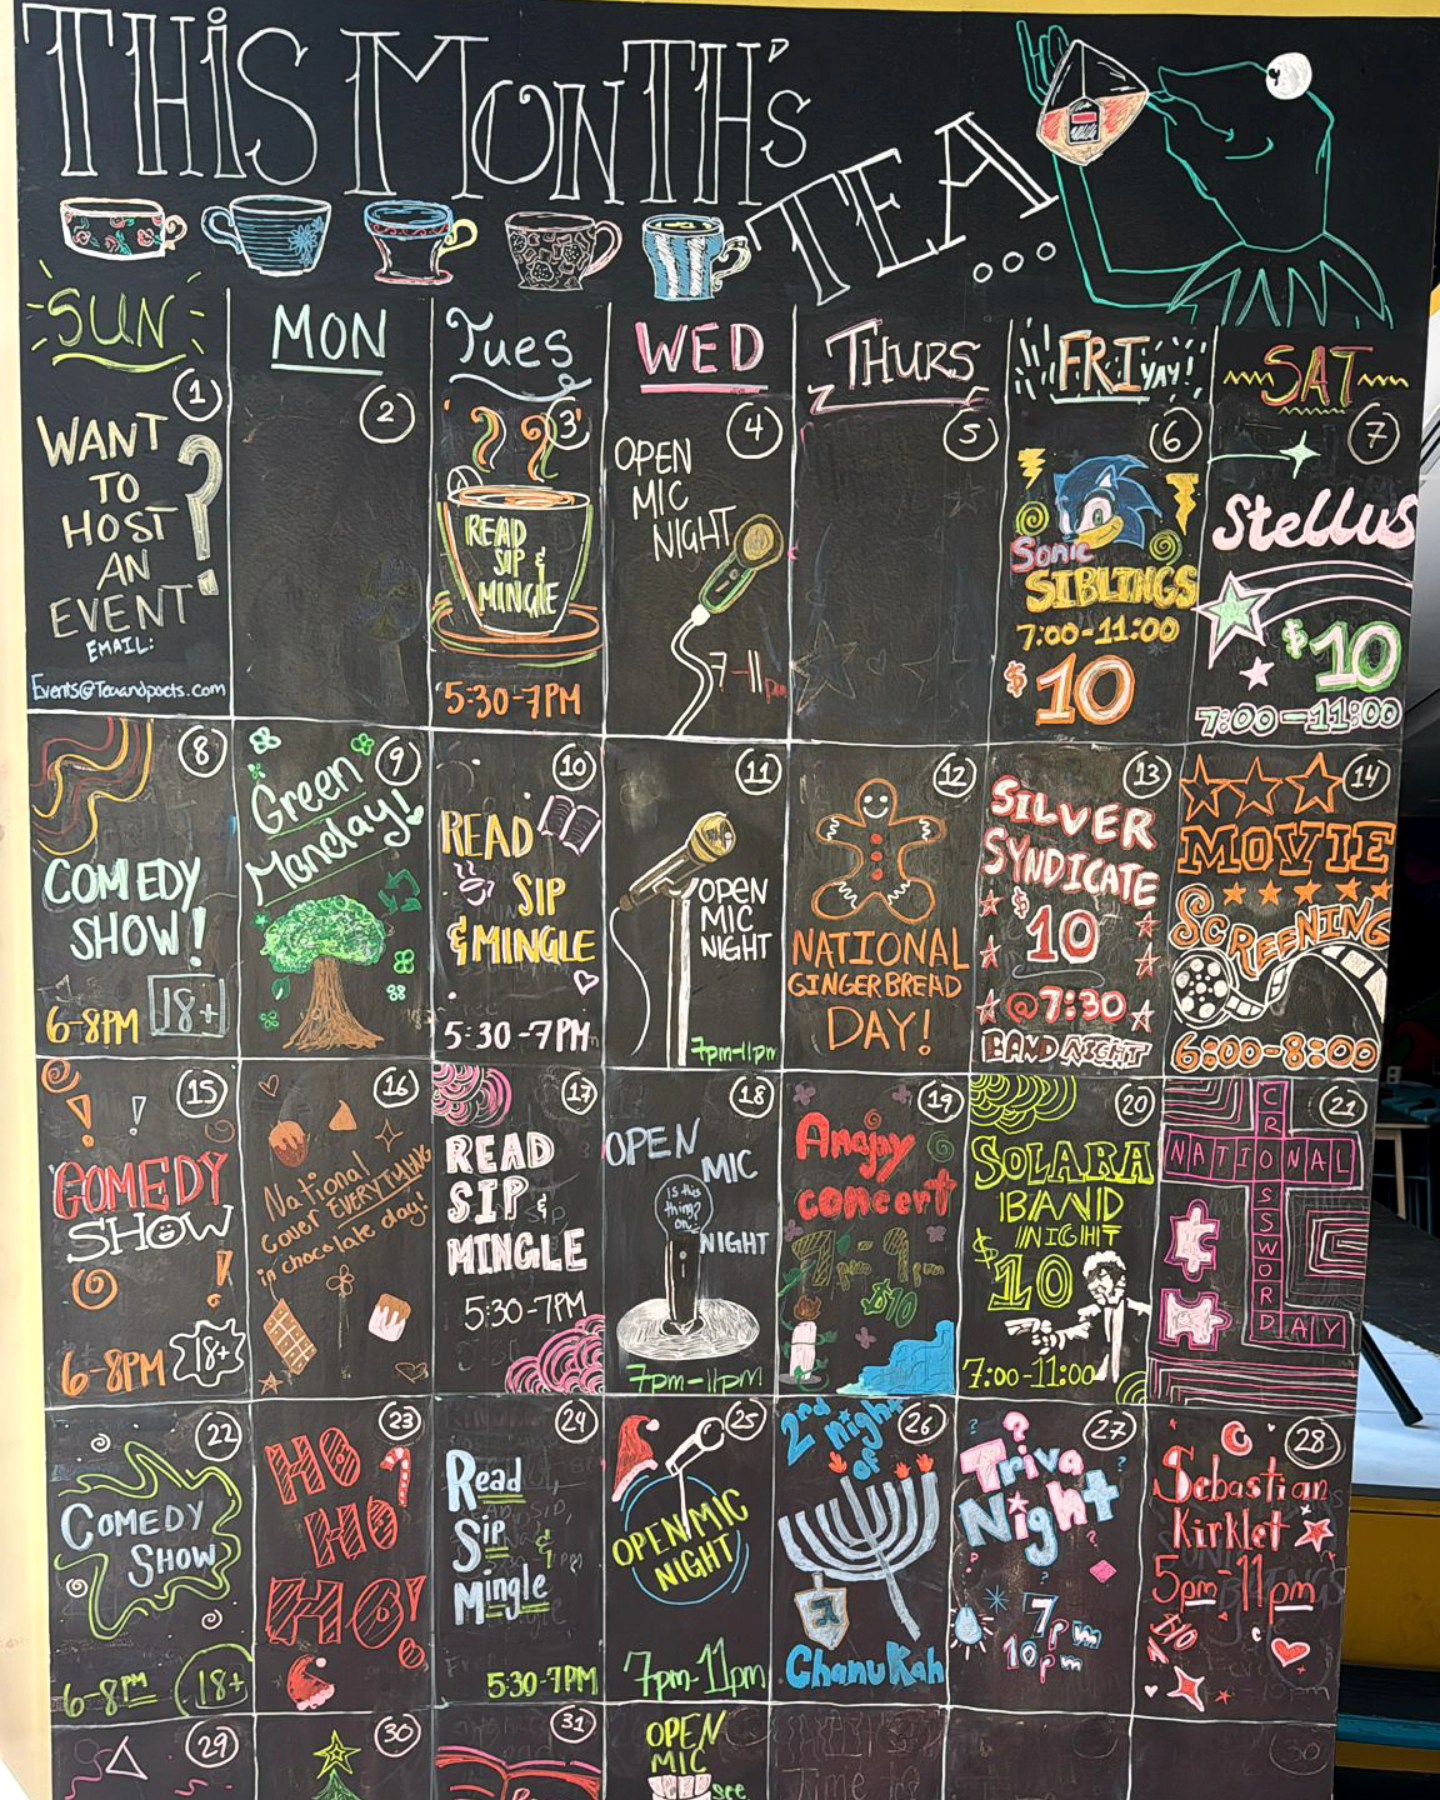 THIS MONTH'S
TEA...
SUN
MON
Tues
WED
THURS
FRI YAY!
SAT
1
WANT
TO
HOST
AN
EVENT?
EMAIL:
Events@Teaandpoets.com
2
3
READ
SIP &
MINGLE
5:30-7PM
4
OPEN
MIC
NIGHT
7-11pm
5
6
Sonic
SIBLINGS
7:00-11:00
$10
7
Stellus
$10
7:00-11:00
8
COMEDY
SHOW!
6-8PM 18+
9
Green
Monday!
10
READ
SIP
& MINGLE
5:30-7PM
11
OPEN
MIC
NIGHT
7pm-11pm
12
NATIONAL
GINGERBREAD
DAY!
13
SILVER
SYNDICATE
$10
@7:30
BAND NIGHT
14
MOVIE
SCREENING
6:00-8:00
15
COMEDY
SHOW
6-8PM 18+
16
National
cover EVERYTHING
in chocolate day!
17
READ
SIP &
MINGLE
5:30-7PM
18
OPEN
MIC
is this
thing?
on
NIGHT
7pm-11pm!
19
Angjy
concert
7pm-9pm
$10
20
SOLARA
BAND
NIGHT
$10
7:00-11:00
21
NATIONAL
CROSSWORD
DAY
22
COMEDY
SHOW
6-8PM 18+
23
HO
HO
HO!
24
Read
Sip &
Mingle
5:30-7PM
25
OPEN MIC
NIGHT
7pm-11pm
26
2nd
night
of
ChanuKah
27
Triva
Night
7pm
10pm
28
Sebastian
Kirklet
5pm-11pm
$10
29
30
31
OPEN
MIC
see
Time to
30